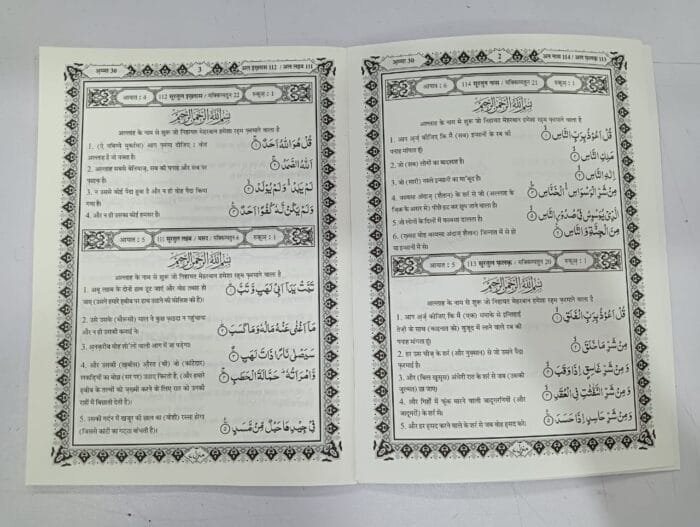 अम्मा 30
3
अल इख़्लास 112 / अल लहब 111
आयात : 4
112 सूरतुल इख़्लास / मक्किय्यतुन 22
रुकूअ : 1
بِسْمِ اللهِ الرَّحْمٰنِ الرَّحِيْمِ
अल्लाह के नाम से शुरू जो निहायत मेहरबान हमेशा रहम फ़रमाने वाला है
1. (ऐ नबिय्ये मुकर्रम!) आप फ़रमा दीजिए : वोह
अल्लाह है जो यक्ता है।
قُلْ هُوَ اللهُ اَحَدٌ
2. अल्लाह सबसे बेनियाज़, सब की पनाह और सब पर
फ़ाइक़ है।
اَللهُ الصَّمَدُ
3. न उससे कोई पैदा हुआ है और न ही वोह पैदा किया
गया है।
لَمْ يَلِدْ وَلَمْ يُوْلَدْ
4. और न ही उसका कोई हमसर है।
وَلَمْ يَكُنْ لَّهٗ كُفُوًا اَحَدٌ
आयात : 5
111 सूरतुल लहब / मसद : मक्किय्यतुन 6
रुकूअ : 1
بِسْمِ اللهِ الرَّحْمٰنِ الرَّحِيْمِ
अल्लाह के नाम से शुरू जो निहायत मेहरबान हमेशा रहम फ़रमाने वाला है
1. अबू लहब के दोनों हाथ टूट जाएं और वोह तबाह हो
जाए (उसने हमारे हबीब पर हाथ उठाने की कोशिश की है)।
تَبَّتْ يَدَآ اَبِيْ لَهَبٍ وَّتَبَّ
2. उसे उसके (मौरूसी) माल ने कुछ फ़ाइदा न पहुंचाया
और न ही उसकी कमाई ने।
مَآ اَغْنٰى عَنْهُ مَالُهٗ وَمَا كَسَبَ
3. अनक़रीब वोह शो'लों वाली आग में जा पड़ेगा।
سَيَصْلٰى نَارًا ذَاتَ لَهَبٍ
4. और उसकी (ख़बीस) औरत (भी) जो (कांटेदार)
लकड़ियों का बोझ (सर पर) उठाए फिरती है, (और हमारे
हबीब के तल्वों को ज़ख़्मी करने के लिए रात को उनकी
राहों में बिछाती देती है)।
وَّامْرَاَتُهٗ حَمَّالَةَ الْحَطَبِ
5. उसकी गर्दन में खजूर की छाल का (वोही) रस्सा होगा
(जिससे कांटों का गट्ठा बांधती है)।
فِيْ جِيْدِهَا حَبْلٌ مِّنْ مَّسَدٍ
अम्मा 30
2
अन नास 114 / अल फ़लक़ 113
आयात : 6
114 सूरतुन नास / मक्किय्यतुन 21
रुकूअ : 1
بِسْمِ اللهِ الرَّحْمٰنِ الرَّحِيْمِ
अल्लाह के नाम से शुरू जो निहायत मेहरबान हमेशा रहम फ़रमाने वाला है
1. आप अर्ज़ कीजिए कि मैं (सब) इन्सानों के रब की
पनाह मांगता हूं।
قُلْ اَعُوْذُ بِرَبِّ النَّاسِ
2. जो (सब) लोगों का बादशाह है।
مَلِكِ النَّاسِ
3. जो (सारी) नस्ले इन्सानी का मा'बूद है।
اِلٰهِ النَّاسِ
4. वस्वसा अंदाज़ (शैतान) के शर्र से जो (अल्लाह के
ज़िक्र के असर से) पीछे हट कर छुप जाने वाला है।
مِنْ شَرِّ الْوَسْوَاسِ الْخَنَّاسِ
5. जो लोगों के दिलों में वस्वसा डालता है।
الَّذِيْ يُوَسْوِسُ فِيْ صُدُوْرِ النَّاسِ
6. (ख़्वाह वोह वस्वसा अंदाज़ शैतान) जिन्नात में से हो
या इन्सानों में से।
مِنَ الْجِنَّةِ وَالنَّاسِ
आयात : 5
113 सूरतुल फ़लक़ : मक्किय्यतुन 20
रुकूअ : 1
بِسْمِ اللهِ الرَّحْمٰنِ الرَّحِيْمِ
अल्लाह के नाम से शुरू जो निहायत मेहरबान हमेशा रहम फ़रमाने वाला है
1. आप अर्ज़ कीजिए कि मैं (एक) धमाके से इन्तिहाई
तेज़ी के साथ (काइनात को) वुजूद में लाने वाले रब की
पनाह मांगता हूं।
قُلْ اَعُوْذُ بِرَبِّ الْفَلَقِ
2. हर उस चीज़ के शर्र (और नुक़्सान) से जो उसने पैदा
फ़रमाई है।
مِنْ شَرِّ مَا خَلَقَ
3. और (बिल ख़ुसूस) अंधेरी रात के शर्र से जब (उसकी)
ज़ुल्मत) छा जाए।
وَمِنْ شَرِّ غَاسِقٍ اِذَا وَقَبَ
4. और गिरहों में फूंक मारने वाली जादूगरनियों (और
जादूगरों) के शर्र से।
وَمِنْ شَرِّ النَّفّٰثٰتِ فِي الْعُقَدِ
5. और हर हसद करने वाले के शर्र से जब वोह हसद करे।
وَمِنْ شَرِّ حَاسِدٍ اِذَا حَسَدَ